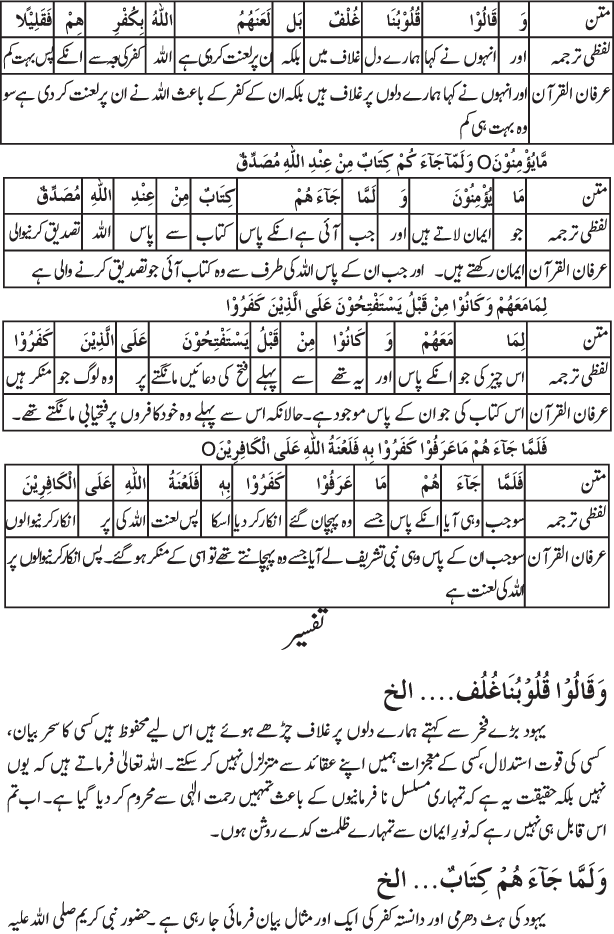 متن وَ قَالُوْا قُلُوْبُنَا غُلْفٌ بَل لَعَنَهُمُ اللهُ بِكُفْرِ هِمْ فَقَلِيْلًا
لفظی ترجمہ اور انہوں نے کہا ہمارے دل غلاف میں بلکہ ان پر لعنت کردی ہے اللہ کفر کی وجہ سے انکے پس بہت کم
عرفان القرآن اور انہوں نے کہا ہمارے دلوں پر غلاف ہیں بلکہ ان کے کفر کے باعث اللہ نے ان پر لعنت کر دی ہے سو
وہ بہت ہی کم
مَّايُؤْمِنُوْنَO وَلَمَّاجَآءَ كُمْ كِتَابٌ مِنْ عِنْدِ اللهِ مُصَدِّقٌ
متن مَا يُؤْمِنُوْنَ وَ لَمَّا جَآءَ هُمْ كِتَابٌ مِنْ عِنْدِ اللهِ مُصَدِّقٌ
لفظی ترجمہ جو ایمان لاتے ہیں اور جب آئی ہے انکے پاس کتاب سے پاس اللہ تصدیق کرنیوالی
عرفان القرآن ایمان رکھتے ہیں۔ اور جب ان کے پاس اللہ کی طرف سے وہ کتاب آئی جو تصدیق کرنے والی ہے
لِمَامَعَهُمْ وَكَانُوْا مِنْ قَبْلُ يَسْتَفْتِحُوْنَ عَلَى الَّذِيْنَ كَفَرُوْا
متن لِمَا مَعَهُمْ وَ كَانُوْا مِنْ قَبْلُ يَسْتَفْتِحُوْنَ عَلَى الَّذِيْنَ كَفَرُوْا
لفظی ترجمہ اس چیز کی جو انکے پاس اور یہ تھے سے پہلے فتح کی دعائیں مانگتے پر وہ لوگ جو منکر ہیں
عرفان القرآن اس کتاب کی جو ان کے پاس موجود ہے۔ حالانکہ اس سے پہلے وہ خود کافروں پر فتحیابی مانگتے تھے۔
فَلَمَّا جَآءَ هُمْ مَاعَرَفُوْا كَفَرُوْا بِهٖ فَلَعْنَةُ اللهِ عَلَى الْكَافِرِيْنَO
متن فَلَمَّا جَآءَ هُمْ مَا عَرَفُوْا كَفَرُوْا بِهٖ فَلَعْنَةُ اللهِ عَلَى الْكَافِرِيْنَ
لفظی ترجمہ سوجب وہی آیا انکے پاس جسے وہ پہچان گئے انکار کردیا اسکا پس لعنت اللہ کی پر انکار کرنیوالوں
عرفان القرآن سوجب ان کے پاس وہی نبی تشریف لے آیا جسے وہ پہچانتے تھے تو اسی کے منکر ہوگئے۔ پس انکار کرنیوالوں پر
اللہ کی لعنت ہے
تفسیر
وَقَالُوْا قُلُوْبُنَا غُلْف.... الخ
یہود بڑے فخر سے کہتے ہمارے دلوں پر غلاف چڑھے ہوئے ہیں اس لیے محفوظ ہیں کسی کا سحر بیان،
کسی کی قوت استدلال، کسی کے معجزات ہمیں اپنے عقائد سے متزلزل نہیں کر سکتے۔ اللہ تعالیٰ فرماتے ہیں کہ یوں
نہیں بلکہ حقیقت یہ ہے کہ تمہاری مسلسل نافرمانیوں کے باعث تمہیں رحمت الٰہی سے محروم کر دیا گیا ہے۔ اب تم
اس قابل ہی نہیں رہے کہ نورِ ایمان سے تمہارے ظلمت کدے روشن ہوں۔
وَلَمَّا جَآءَ هُمْ كِتَابٌ... الخ
یہود کی ہٹ دھرمی اور دانستہ کفر کی ایک اور مثال بیان فرمائی جا رہی ہے۔ حضور نبی کریم صلی اللہ علیہ